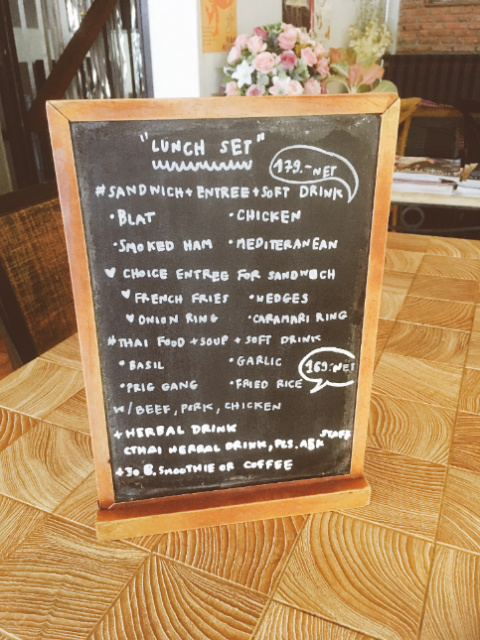 "LUNCH SET"
179.-NET
#SANDWICH + ENTREE + SOFT DRINK
• BLAT • CHICKEN
• SMOKED HAM • MEDITERANEAN
♥ CHOICE ENTREE FOR SANDWICH
♥ FRENCH FRIES • WEDGES
♥ ONION RING • CARAMARI RING
#THAI FOOD + SOUP + SOFT DRINK
• BASIL • GARLIC 169.-NET
• PRIG GANG • FRIED RICE
W/ BEEF, PORK, CHICKEN
+ HERBAL DRINK
(THAI HERBAL DRINK, PLS. ASK STAFF
+30 B. SMOOTHIE OR COFFEE